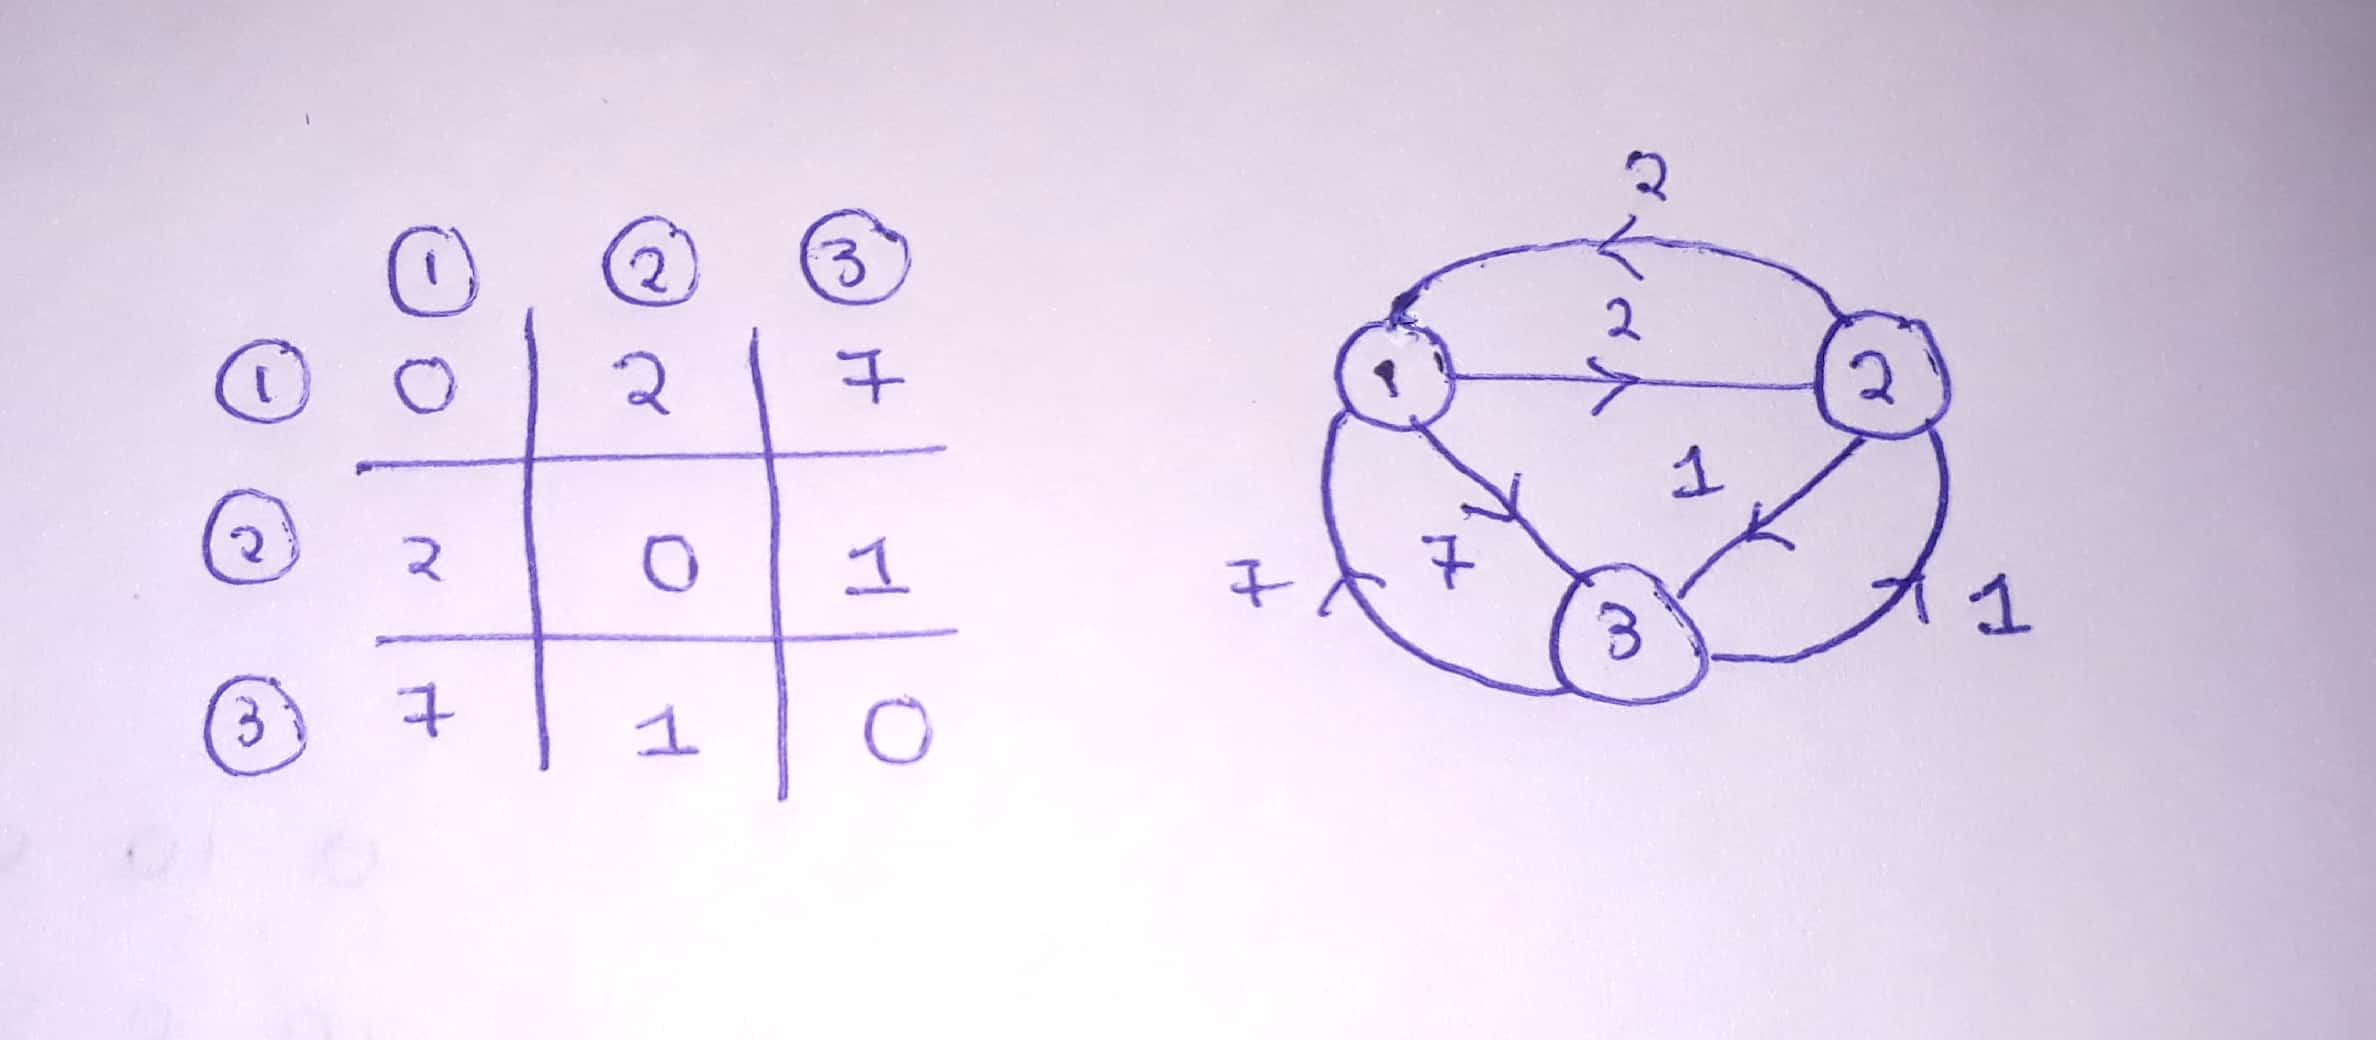 1 2 3
1 0 2 7
2 2 0 1
3 7 1 0
2
2
1 2
1
7 7
3 1